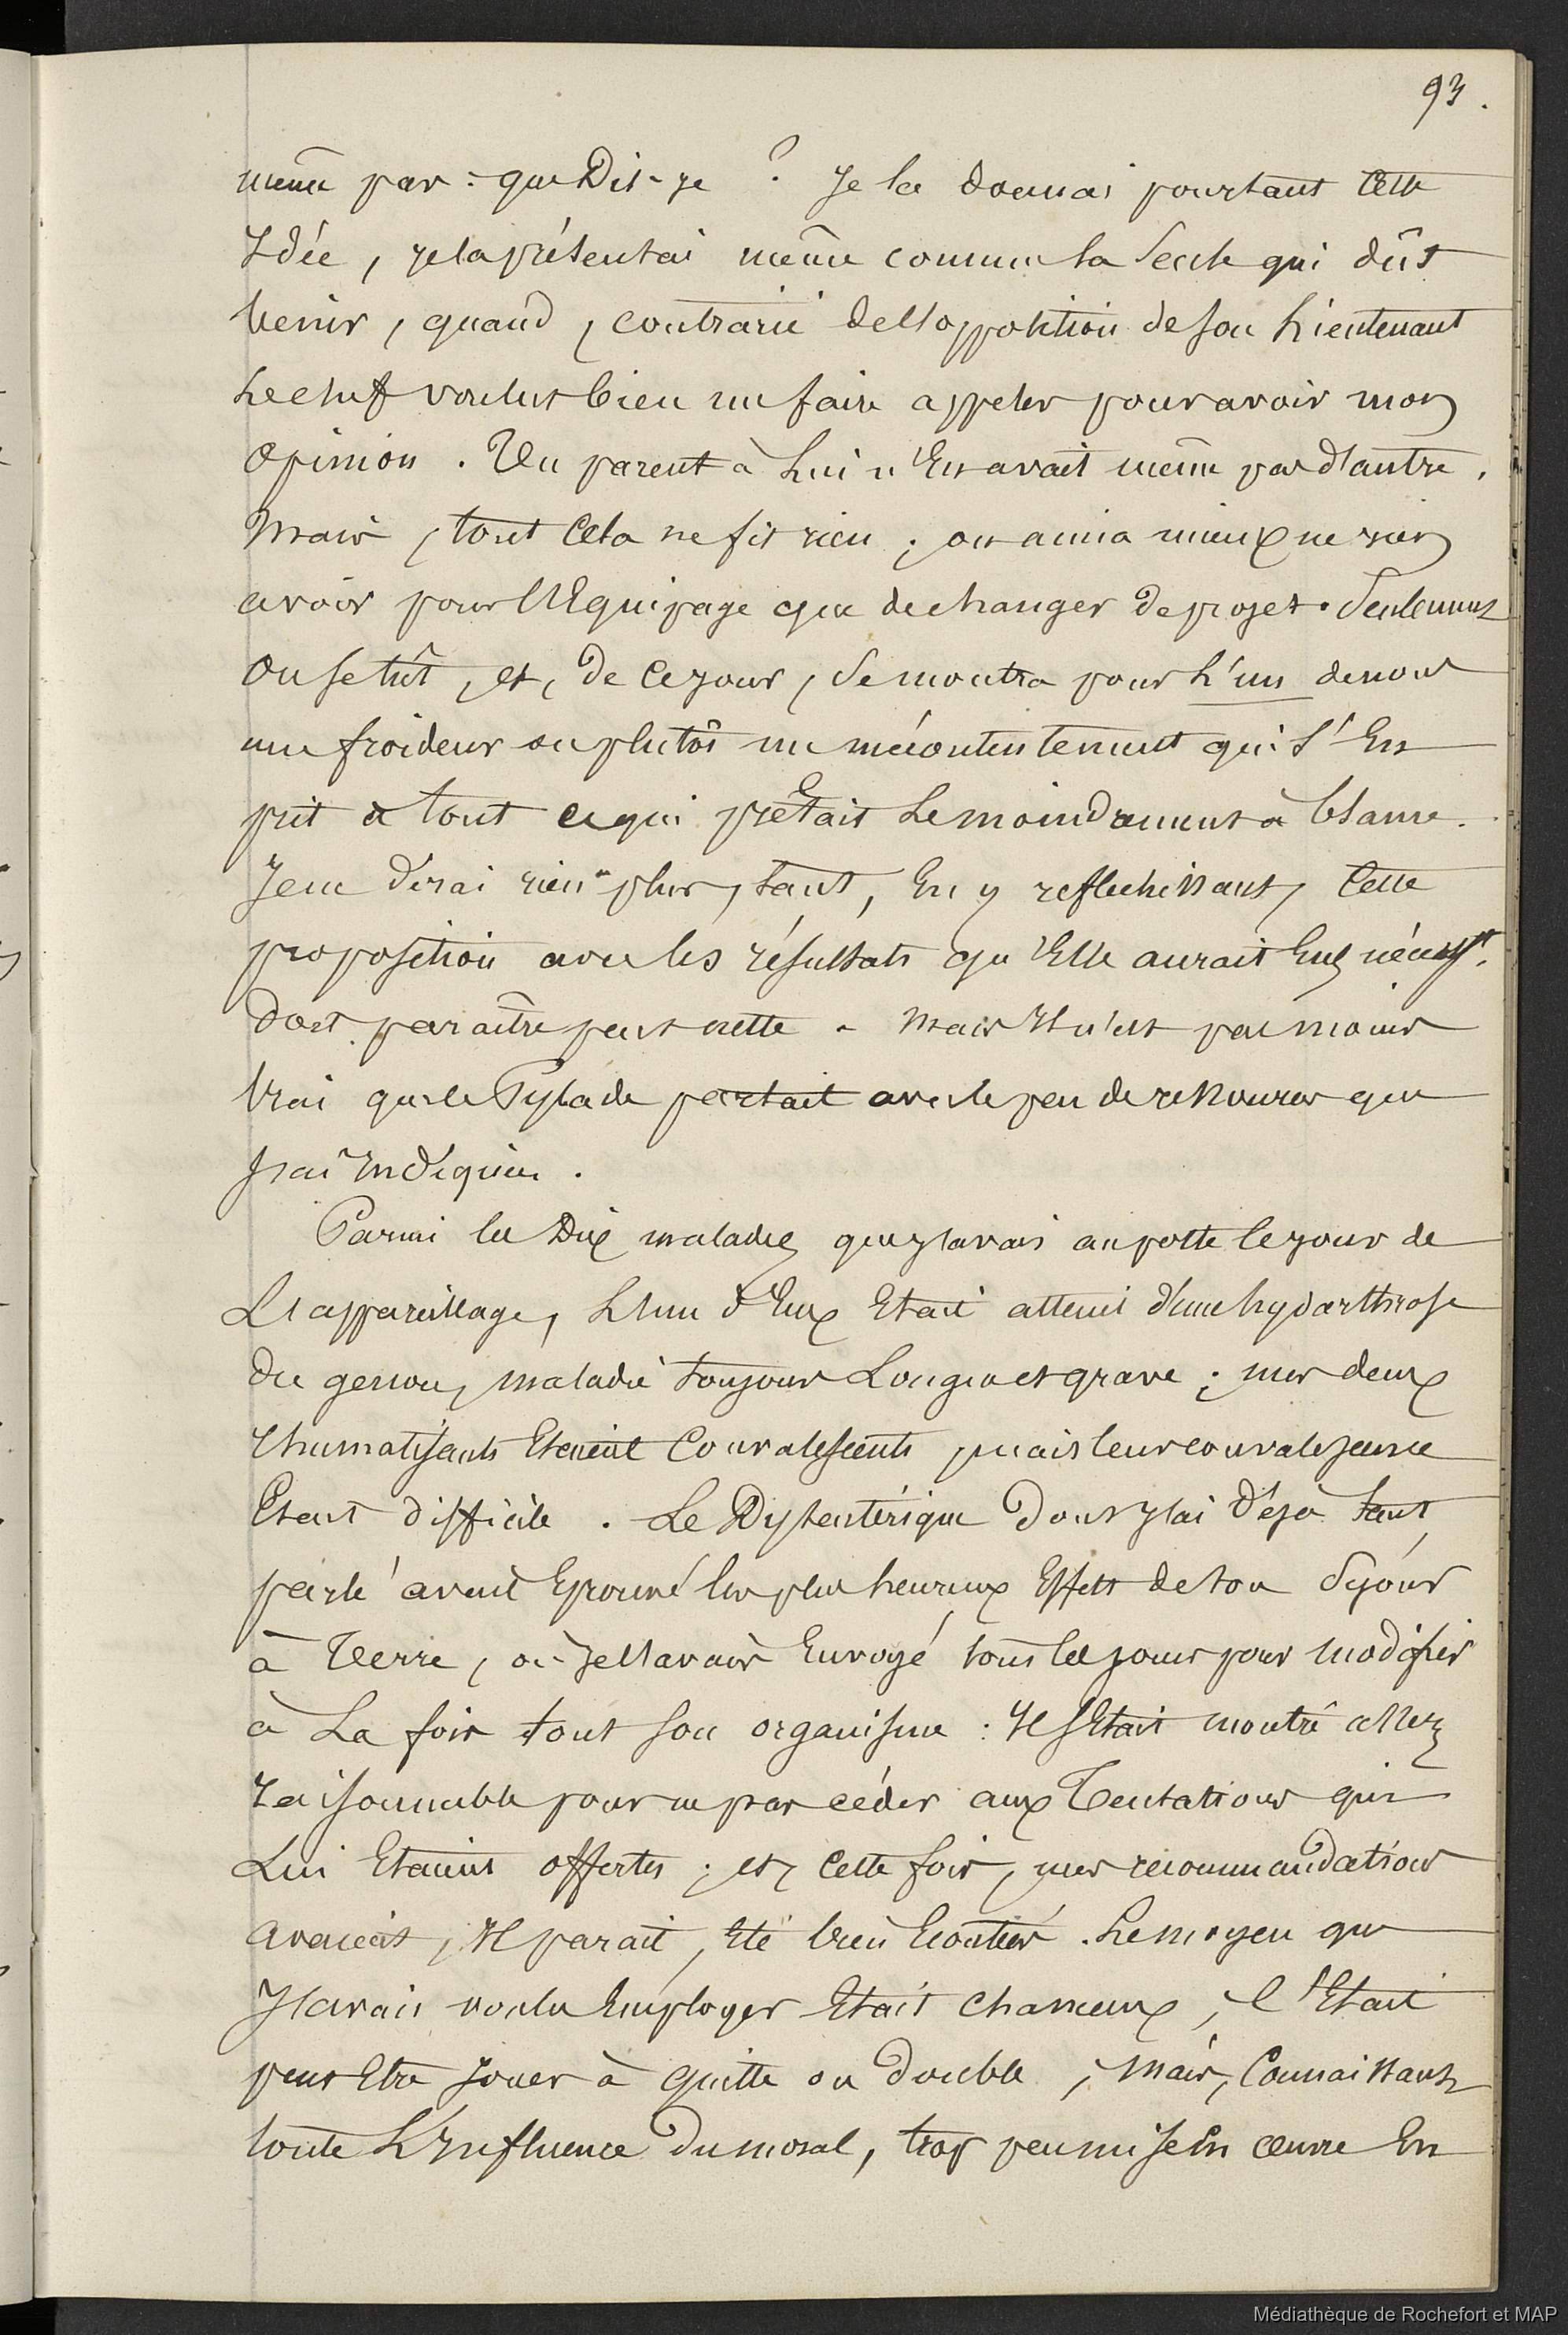 93.
même pas : que Dis-je ? Je la donnai pourtant cette
Idée, je la présentai même comme la Seule qui dût
Venir, quand, contrarié de l'opposition de son Lieutenant
Le chef voulut bien me faire appeler pour avoir mon
opinion. Un parent à Lui n'En avait même pas d'autre.
Mais, tout Cela ne fit rien ; on aima mieux ne rien
avoir pour l'Equipage que de changer de projet. Seulement
on se tût, et, de ce jour, Se montra pour L'un de nous
une froideur ou plutôt un mécontentement qui S'En
prit à tout ce qui prêtait Le moindrement à blame.
Je ne dirai rien plus, tant, En y reflechissant, Cette
proposition avec les résultats qu'Elle aurait Eus nécesst.
doit paraître peu nette - Mais Il n'est pas moins
Vrai que le Pylade partait avec le peu de ressources que
j'ai Indiquées.
Parmi les Dix malades que j'avais au poste le jour de
L'appareillage, L'un d'Eux Etait atteint d'une hydarthrose
du genou, maladie toujours Longue et grave ; mes deux
rhumatisants Etaient Convalescents, mais leur convalescence
Etait difficile. Le Dysentérique dont j'ai déjà tant
parlé avait Eprouvé les plus heureux Effets de son Séjour
à Terre, où je l'avais Envoyé tous les jours pour modifier
à La fois tout son organisme : Il s'Etait montré assez
raisonnable pour ne pas céder aux Tentations qui
Lui Etaient offertes ; et, cette fois, mes recommandations
avaient, Il parait, Eté bien Ecoutées. Le moyen que
J'avais voulu Employer Etait chanceux, c'Etait
peut Etre jouer à quitte ou double ; mais, Connaissant
toute L'Influence du moral, trop peu mise En œuvre En
Médiathèque de Rochefort et MAP